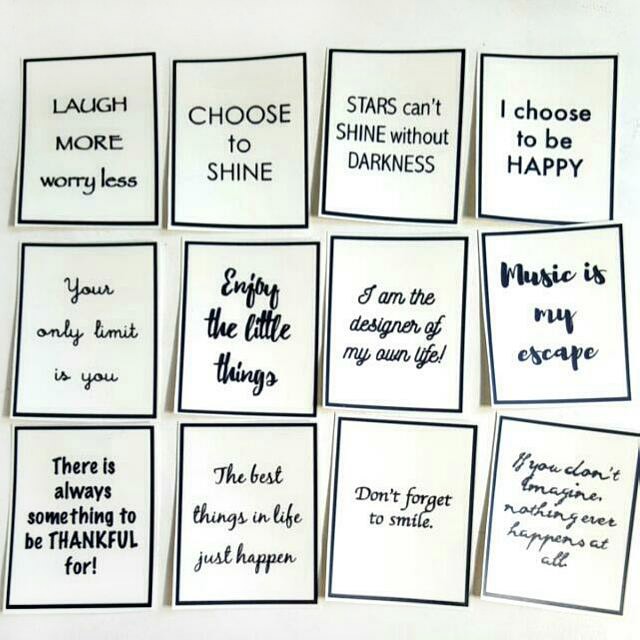 LAUGH
MORE
worry less
CHOOSE
to
SHINE
STARS can't
SHINE without
DARKNESS
I choose
to be
HAPPY
Your
only limit
is you
Enjoy
the little
things
I am the
designer of
my own life!
Music is
my
escape
There is
always
something to
be THANKFUL
for!
The best
things in life
just happen
Don't forget
to smile.
If you don't
imagine,
nothing ever
happens at
all.